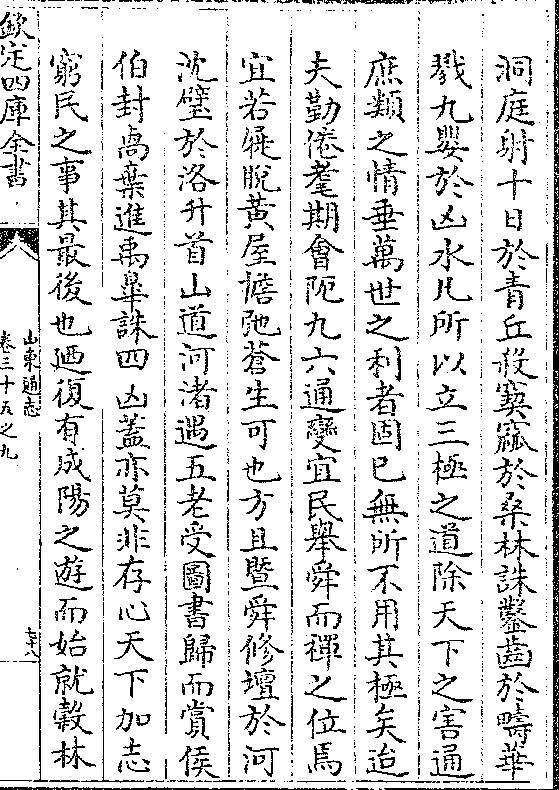 洞庭射十日於青丘殺窫窳於桑林誅鑿齒於疇華
戮九嬰於凶水凡所以立三極之道除天下之害通
庶類之情垂萬世之利者固已無所不用其極矣迨
夫勤倦耄期會阨九六通變宜民舉舜而禪之位焉
宜若屣脫黃屋憺弛蒼生可也方且暨舜修壇於河
沈璧於洛升首山道河渚遇五老受圖書歸而賞侯
伯封卨棄進禹臯誅四凶蓋亦莫非存心天下加志
窮民之事其最後也迺復有成陽之遊而始就穀林
欽定四庫全書
山東通志
卷三十五之九